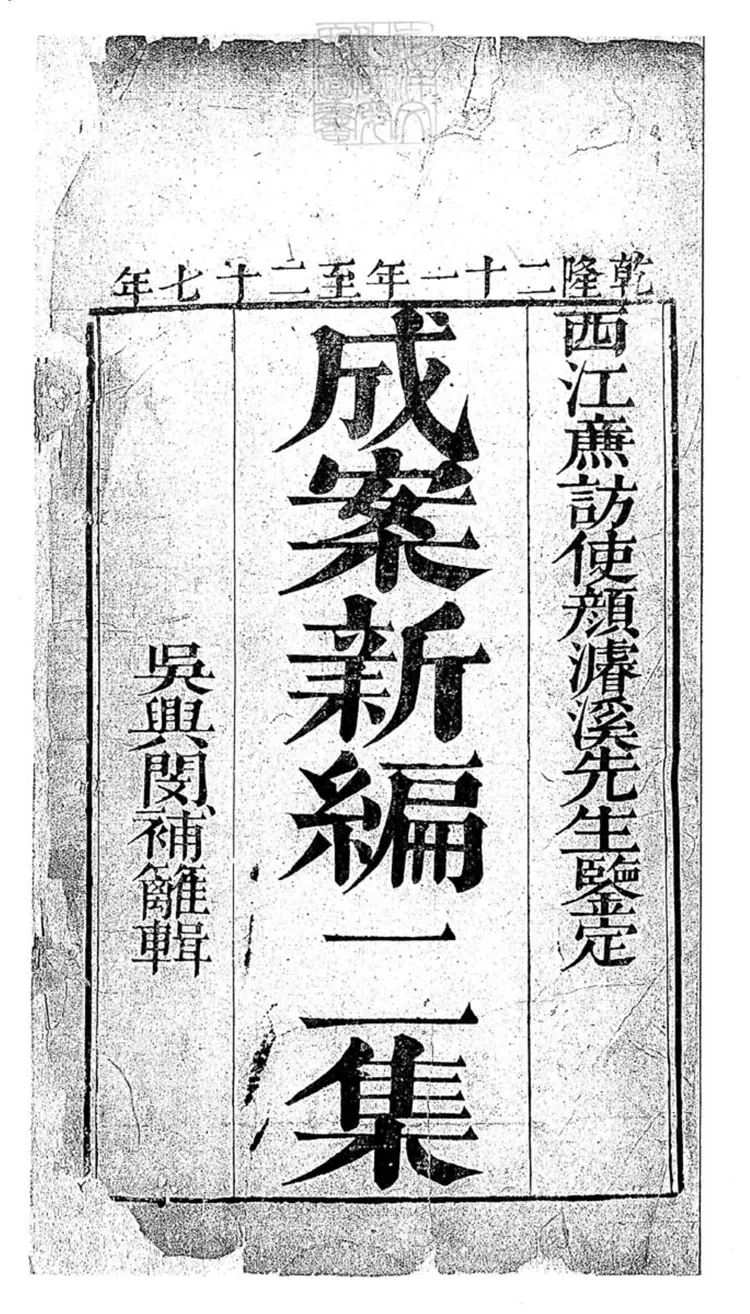 乾隆二十一年至二十七年
西江廉訪使顏濬溪先生鑒定
成案新編二集
吳興閔補籬輯